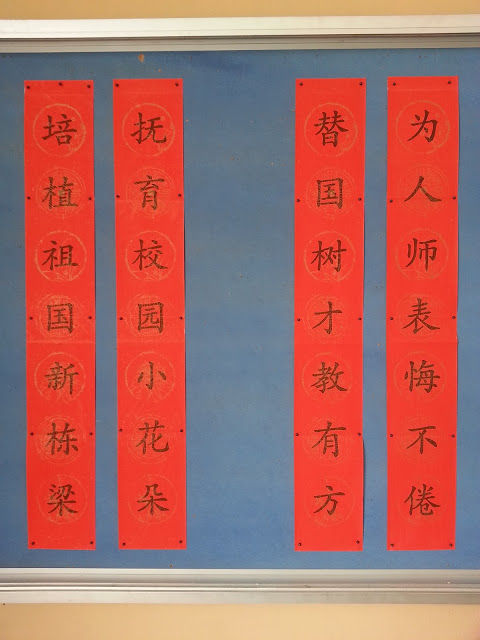 为人师表悔不倦
替国树才教有方
抚育校园小花朵
培植祖国新栋梁